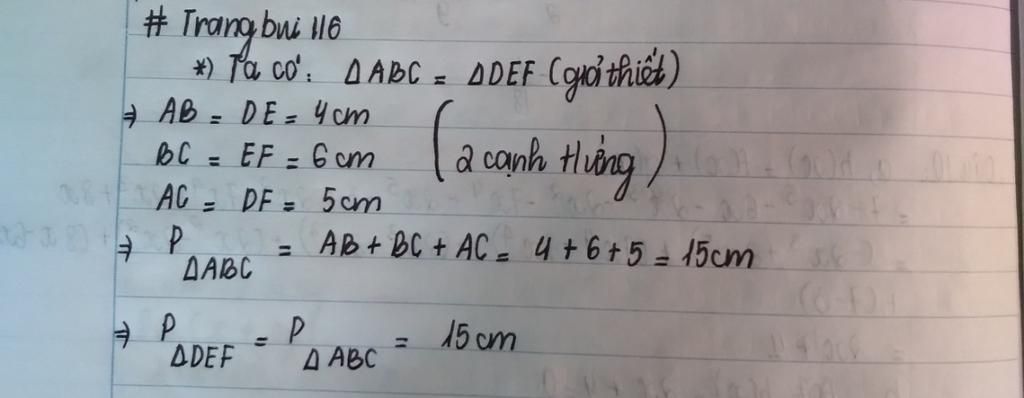 # Trangbui 116
*) Ta có: ΔABC = ΔDEF (giả thiết)
⇒ AB = DE = 4cm
BC = EF = 6cm (2 cạnh t/ứng)
AC = DF = 5cm
⇒ P ΔABC = AB + BC + AC = 4 + 6 + 5 = 15cm
⇒ P ΔDEF = P ΔABC = 15cm